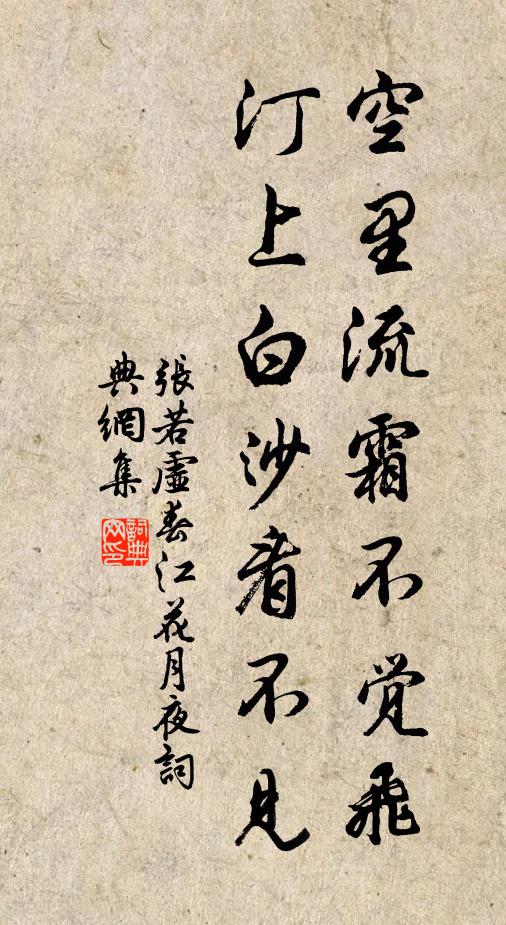 空里流霜不觉飛
汀上白沙看不見
張若虛春江花月夜詞
典網集
詞典
网印